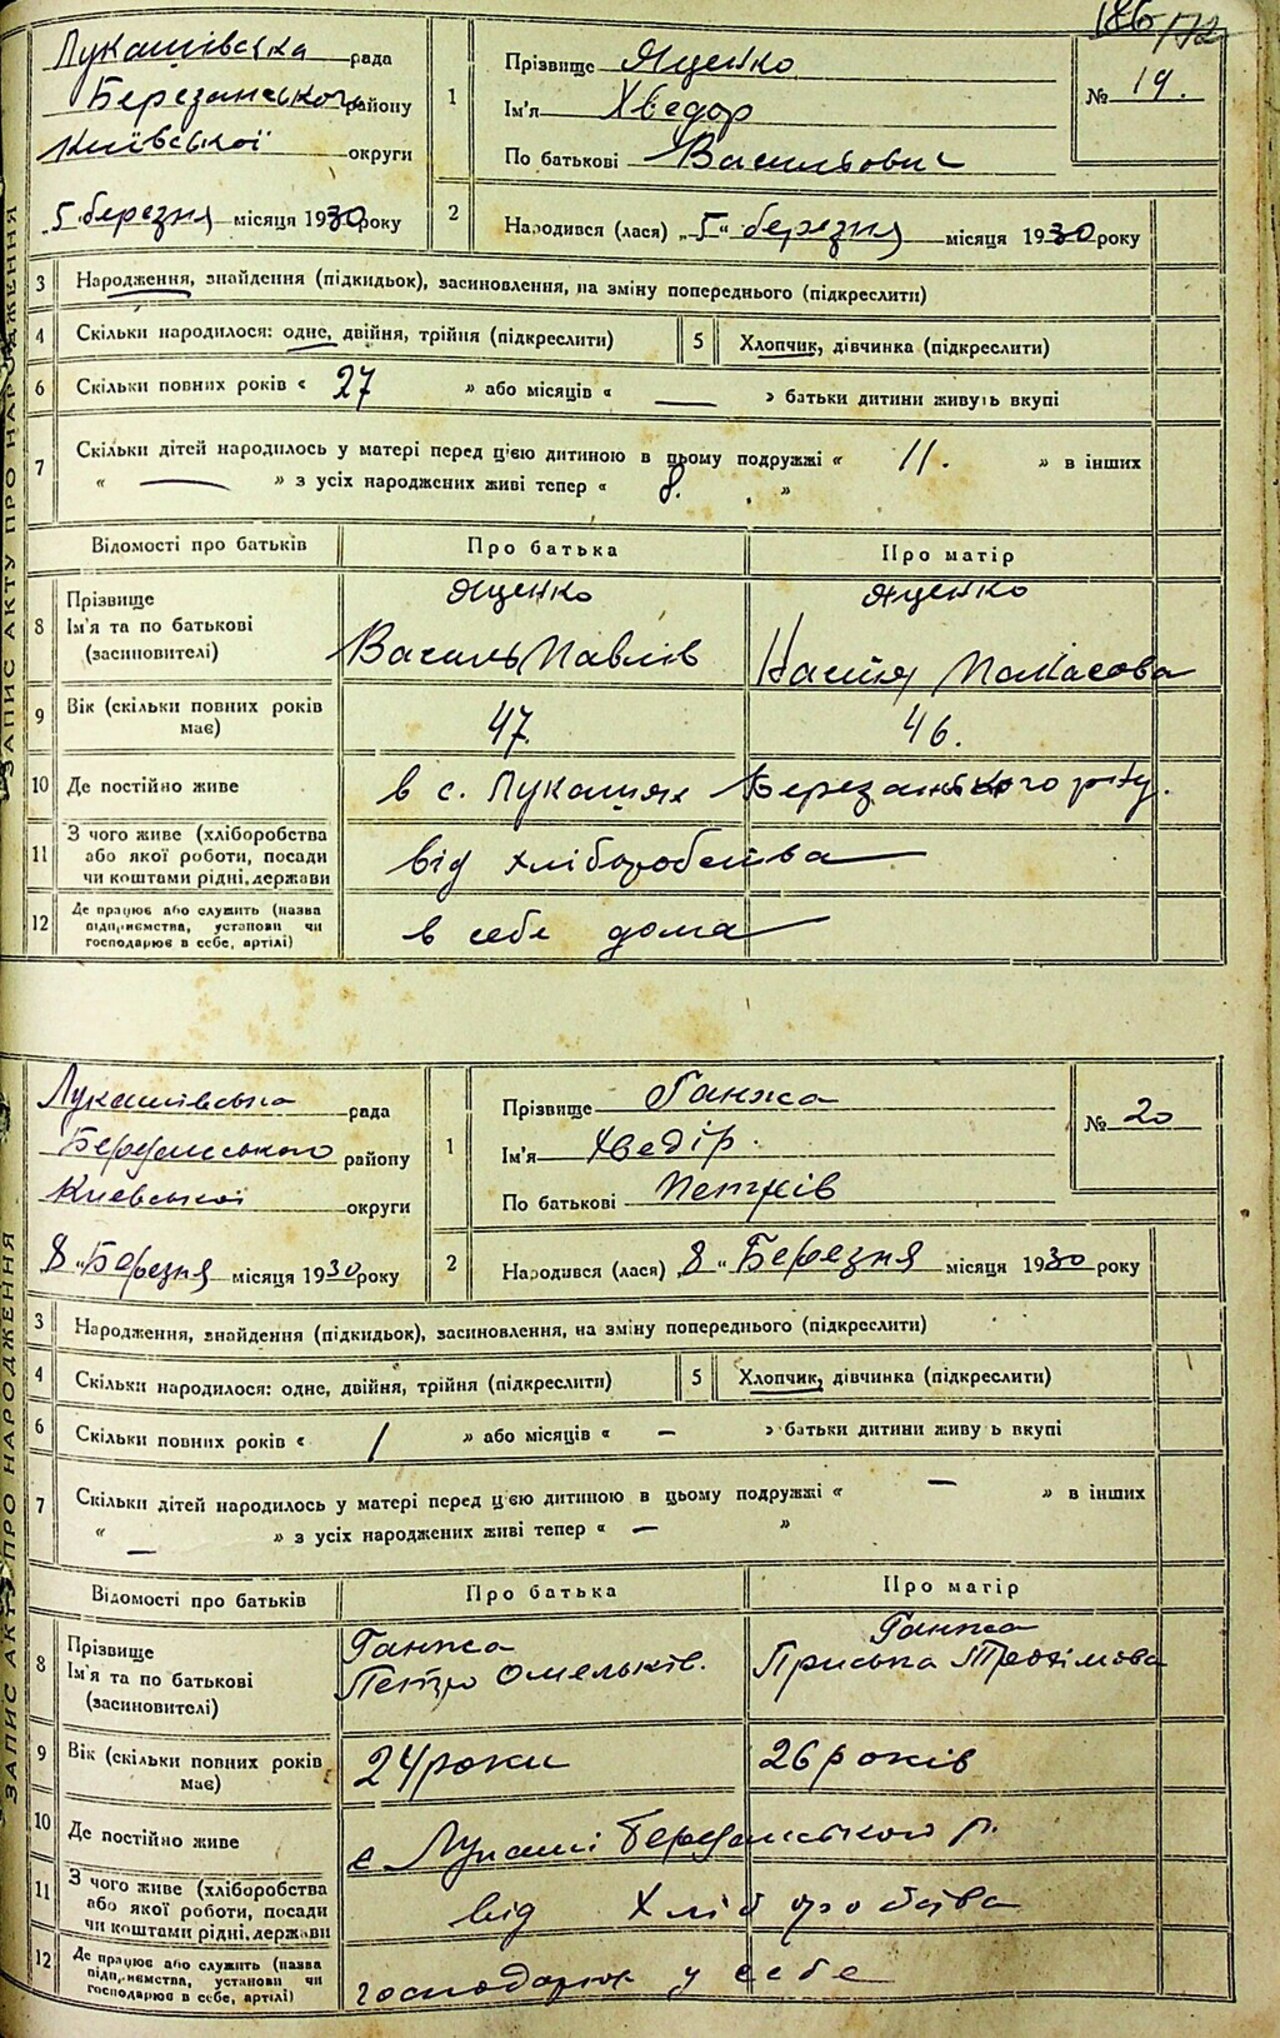 186/172
Лукашівська рада
Березанського району
Київської округи
„5 березня місяця 1930 року
1
Прізвище Яценко
Ім'я Хведор
По батькові Васильович
№ 19.
2
Народився (лася) „5“ березня місяця 1930 року
3 Народження, знайдення (підкидьок), засиновлення, на зміну попереднього (підкреслити)
4 Скільки народилося: одне, двійня, трійня (підкреслити) 5 Хлопчик, дівчинка (підкреслити)
6 Скільки повних років « 27 » або місяців « — » батьки дитини живуть вкупі
7 Скільки дітей народилось у матері перед цією дитиною в цьому подружжі « 11. » в інших
« — » з усіх народжених живі тепер « 8. »
Відомості про батьків Про батька Про матір
8 Прізвище
Ім'я та по батькові
(засиновителі)
Яценко
Василь Павлів
Яценко
Настя
9 Вік (скільки повних років має)
47. 46.
10 Де постійно живе в с. Лукашах Березанського р-ну.
11 З чого живе (хліборобства
або якої роботи, посади
чи коштами рідні, держави
від хліборобства
12 Де працює або служить (назва
підприємства, установи чи
господарює в себе, артілі)
в себе дома
ЗАПИС АКТУ ПРО НАРОДЖЕННЯ
Лукашівська рада
Березанського району
Киевської округи
8 „Березня місяця 1930 року
1
Прізвище Ганжа
Ім'я Хведір.
По батькові Петрів
№ 20
2
Народився (лася) „8“ Березня місяця 1930 року
3 Народження, знайдення (підкидьок), засиновлення, на зміну попереднього (підкреслити)
4 Скільки народилося: одне, двійня, трійня (підкреслити) 5 Хлопчик, дівчинка (підкреслити)
6 Скільки повних років « 1 » або місяців « — » батьки дитини живу ь вкупі
7 Скільки дітей народилось у матері перед цією дитиною в цьому подружжі « — » в інших
« — » з усіх народжених живі тепер « — »
Відомості про батьків Про батька Про матір
8 Прізвище
Ім'я та по батькові
(засиновителі)
Ганжа
Петро Омельків.
Ганжа
Приська
9 Вік (скільки повних років має)
24 роки 26 років
10 Де постійно живе с Лукаші Березанського р.
11 З чого живе (хліборобства
або якої роботи, посади
чи коштами рідні, держави
від Хліборобства
12 Де працює або служить (назва
підприємства, установи чи
господарює в себе, артілі)
господарює у себе
ЗАПИС АКТУ ПРО НАРОДЖЕННЯ